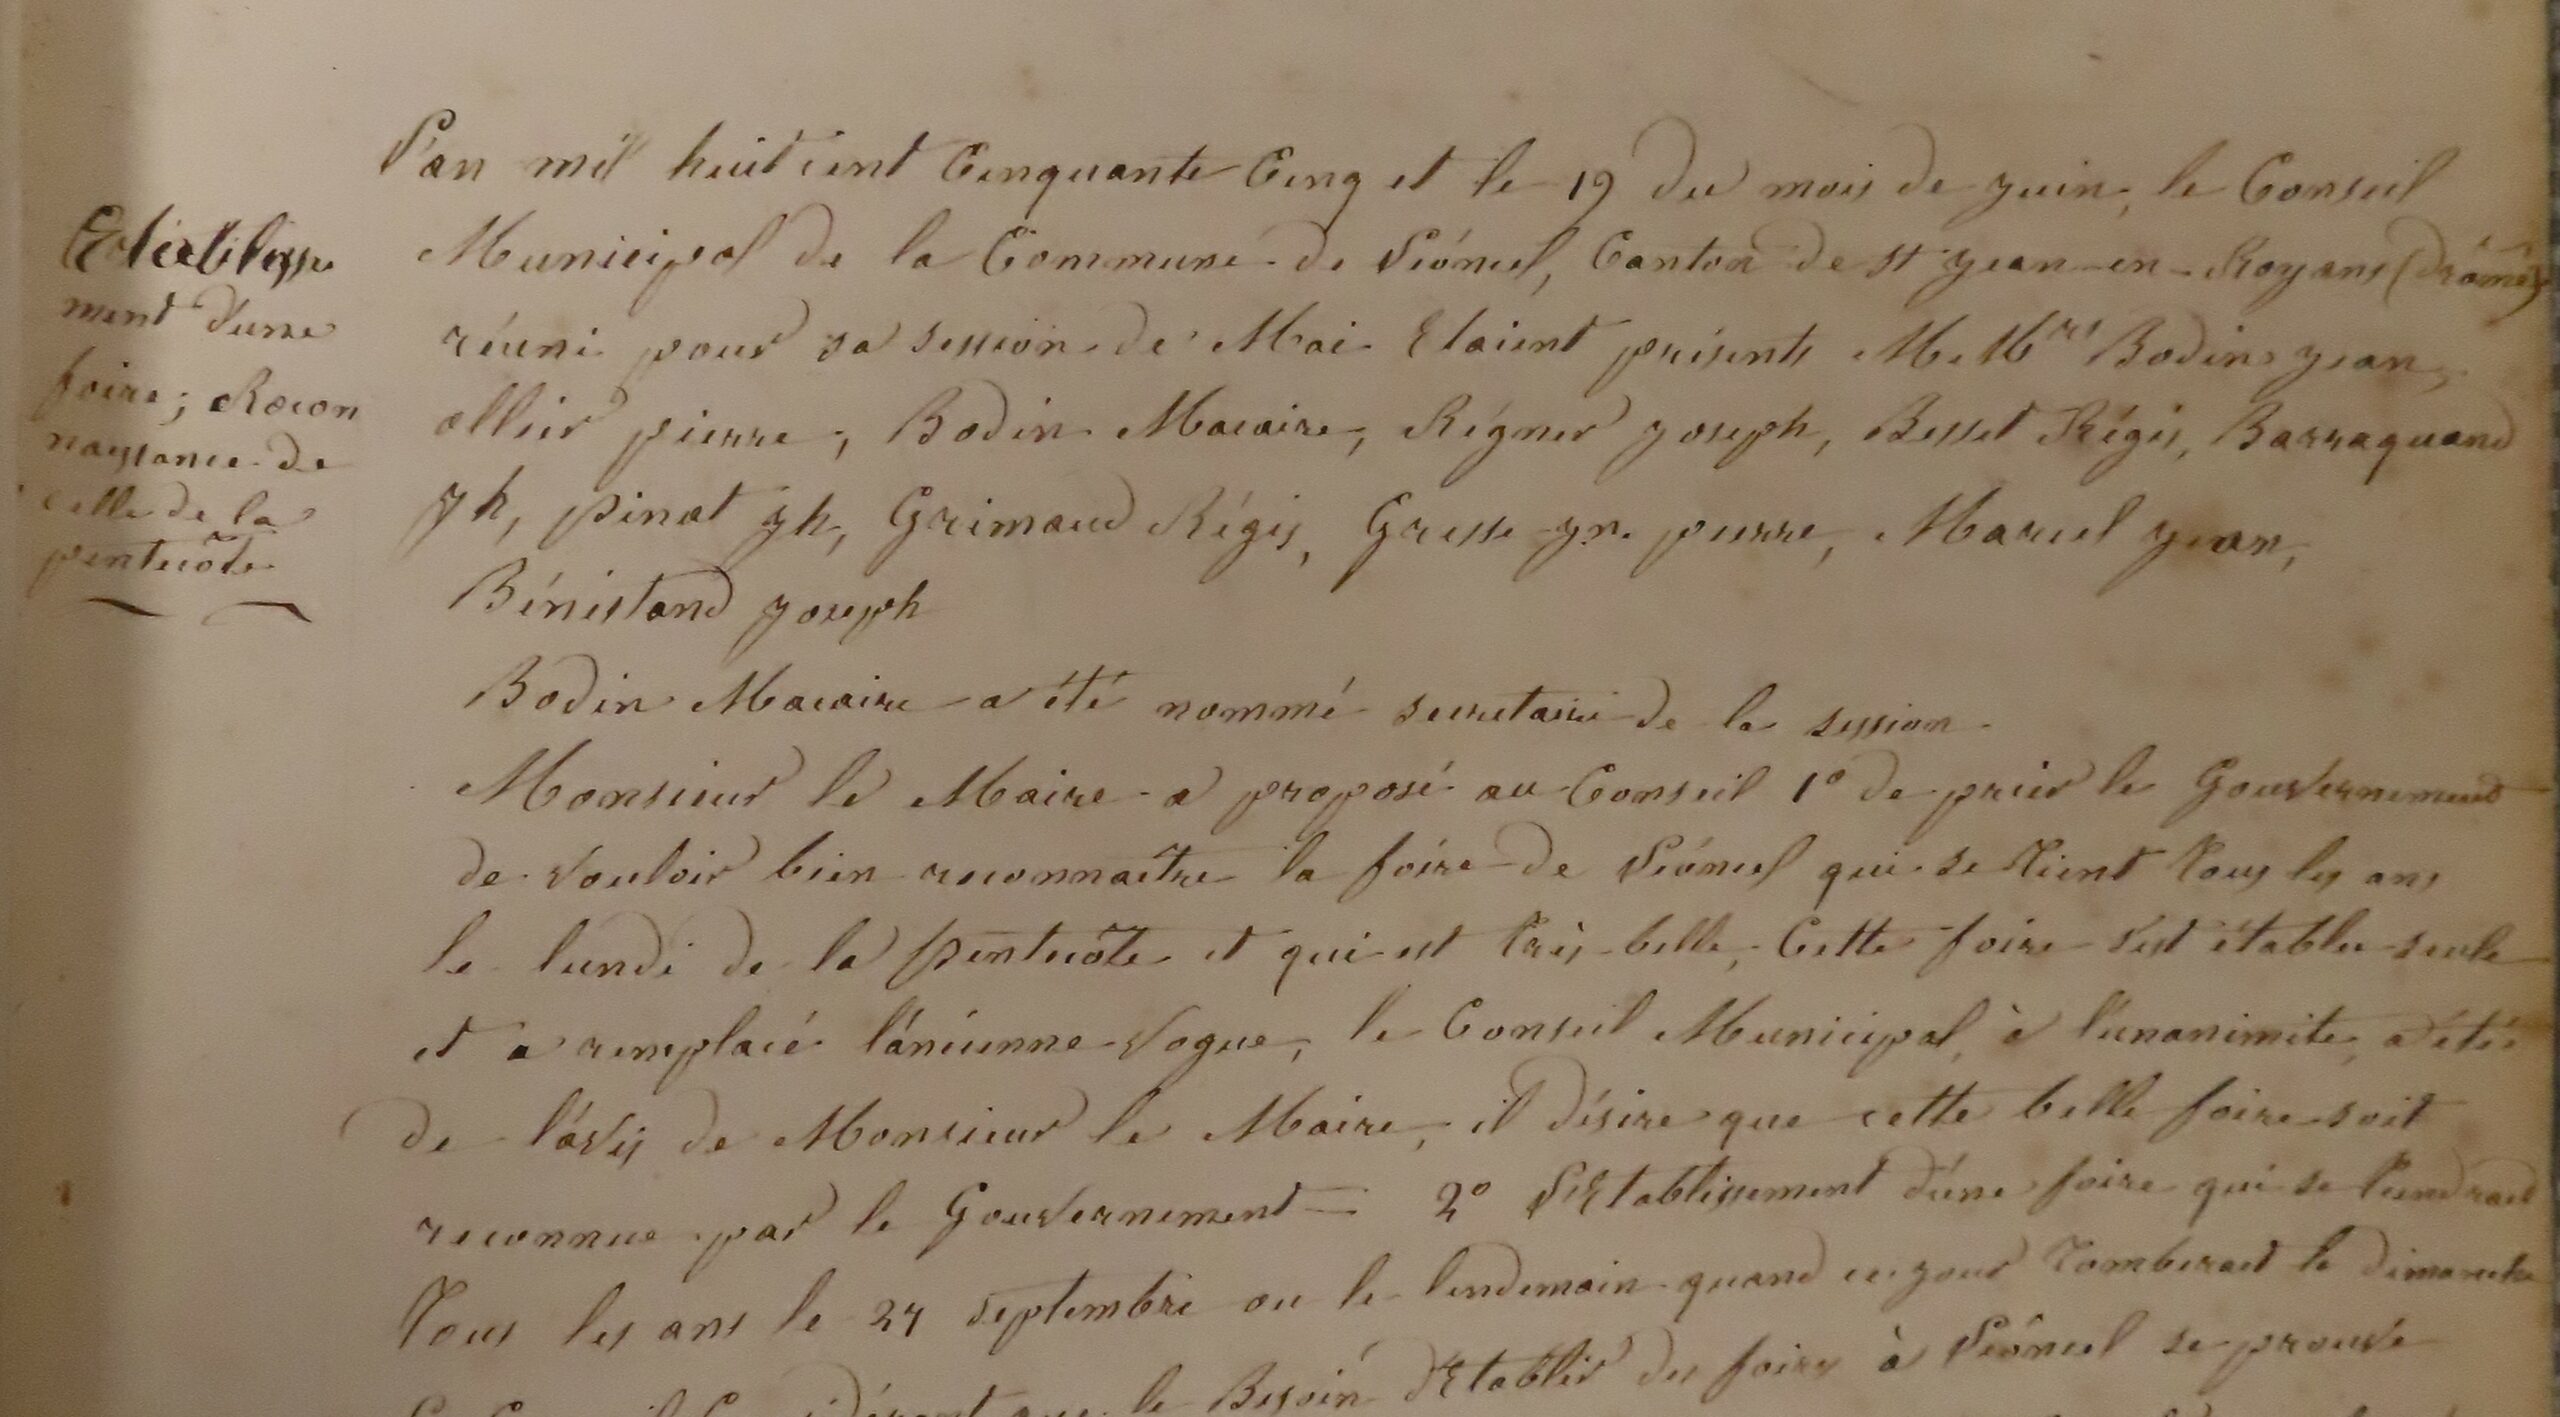 L'an mil huit cent Cinquante Cinq et le 19 du mois de juin, le Conseil
Municipal de la Commune de Léoncel, Canton de St jean-en-Royans (drôme)
réuni pour sa session de Mai Etaient présents M.Mrs Bodin jean,
allier pierre, Bodin Macaire, Régner joseph, Besset Régis, Barraquand
jh, pinat jh, Grimaud Régis, Gresse jn. pierre, Marcel jean,
Bénistand joseph
Bodin Macaire a été nommé secretaire de la session
Monsieur le Maire a proposé au Conseil 1° de prier le Gouvernement
de vouloir bien reconnaître la foire de Léoncel qui se tient tous les ans
le lundi de la pentecôte et qui est très belle, Cette foire s'est établie seule
et a remplacé l'ancienne Vogue, le Conseil Municipal, à l'unanimité, a été
de l'avis de Monsieur le Maire, il désire que cette belle foire soit
reconnue par le Gouvernement = 2° L'Etablissement d'une foire qui se tiendrait
tous les ans le 27 septembre ou le lendemain quand ce jour tomberait le dimanche
que le Besoin d'Etablir des foires à Léoncel se prouve
Etablisse
ment d'une
foire; Recon
naissance de
celle de la
pentecôte